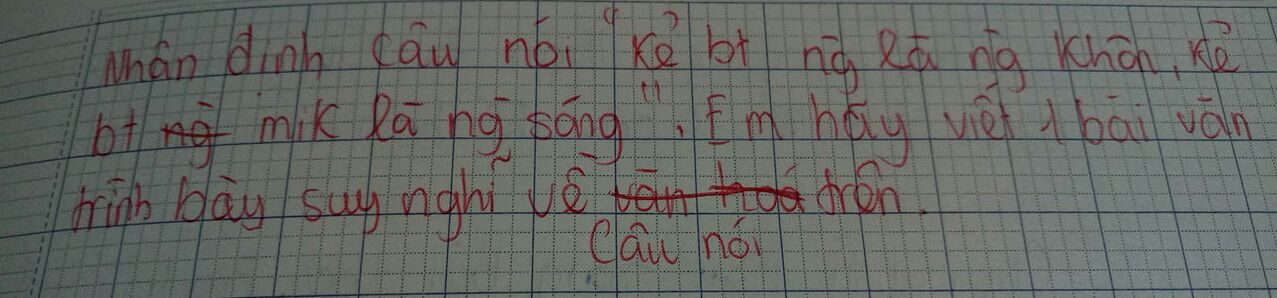 Nhân định câu nói "Kẻ bt ng là ng khôn, kẻ
bt ng mik là ng sáng". Em hãy viết 1 bài văn
trình bày suy nghĩ về văn hoá trên.
câu nói